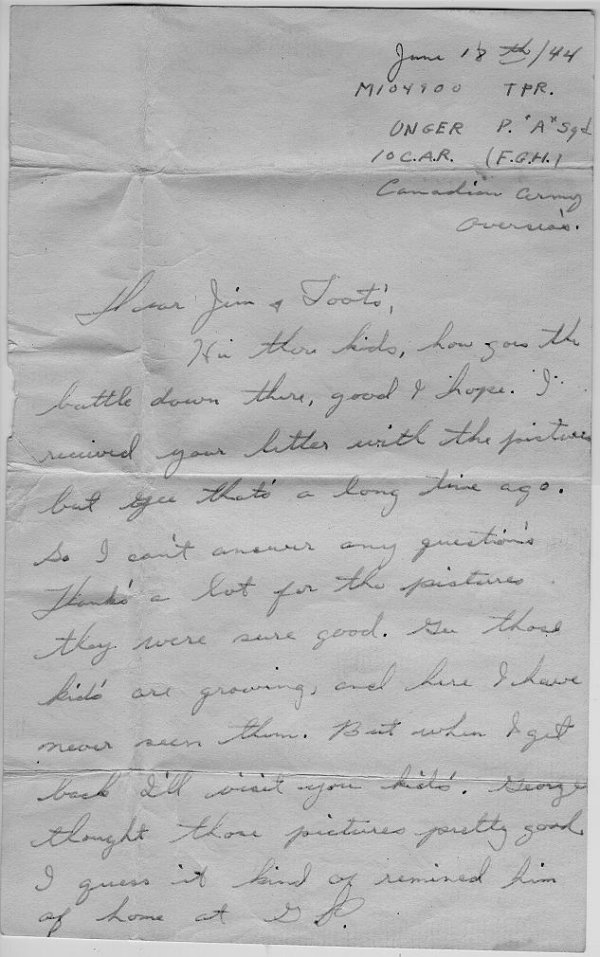 June 18th/44
M104900 TPR.
UNGER P. "A" Sqd.
10 C.A.R. (F.G.H.)
Canadian Army
Oversea's.
Dear Jim & Toots,
Hi thore kids, how goes the
battle down there, good I hope. I
recieved your letter with the pictures
but gee that's a long time ago.
So I can't answer any question's
Thank's a lot for the pictures
they were sure good. Gee those
kid's are growing, and here I have
never seen them. But when I get
back I'll visit you kid's. George
thought those pictures pretty good.
I guess it kind of remined him
of home at G P.